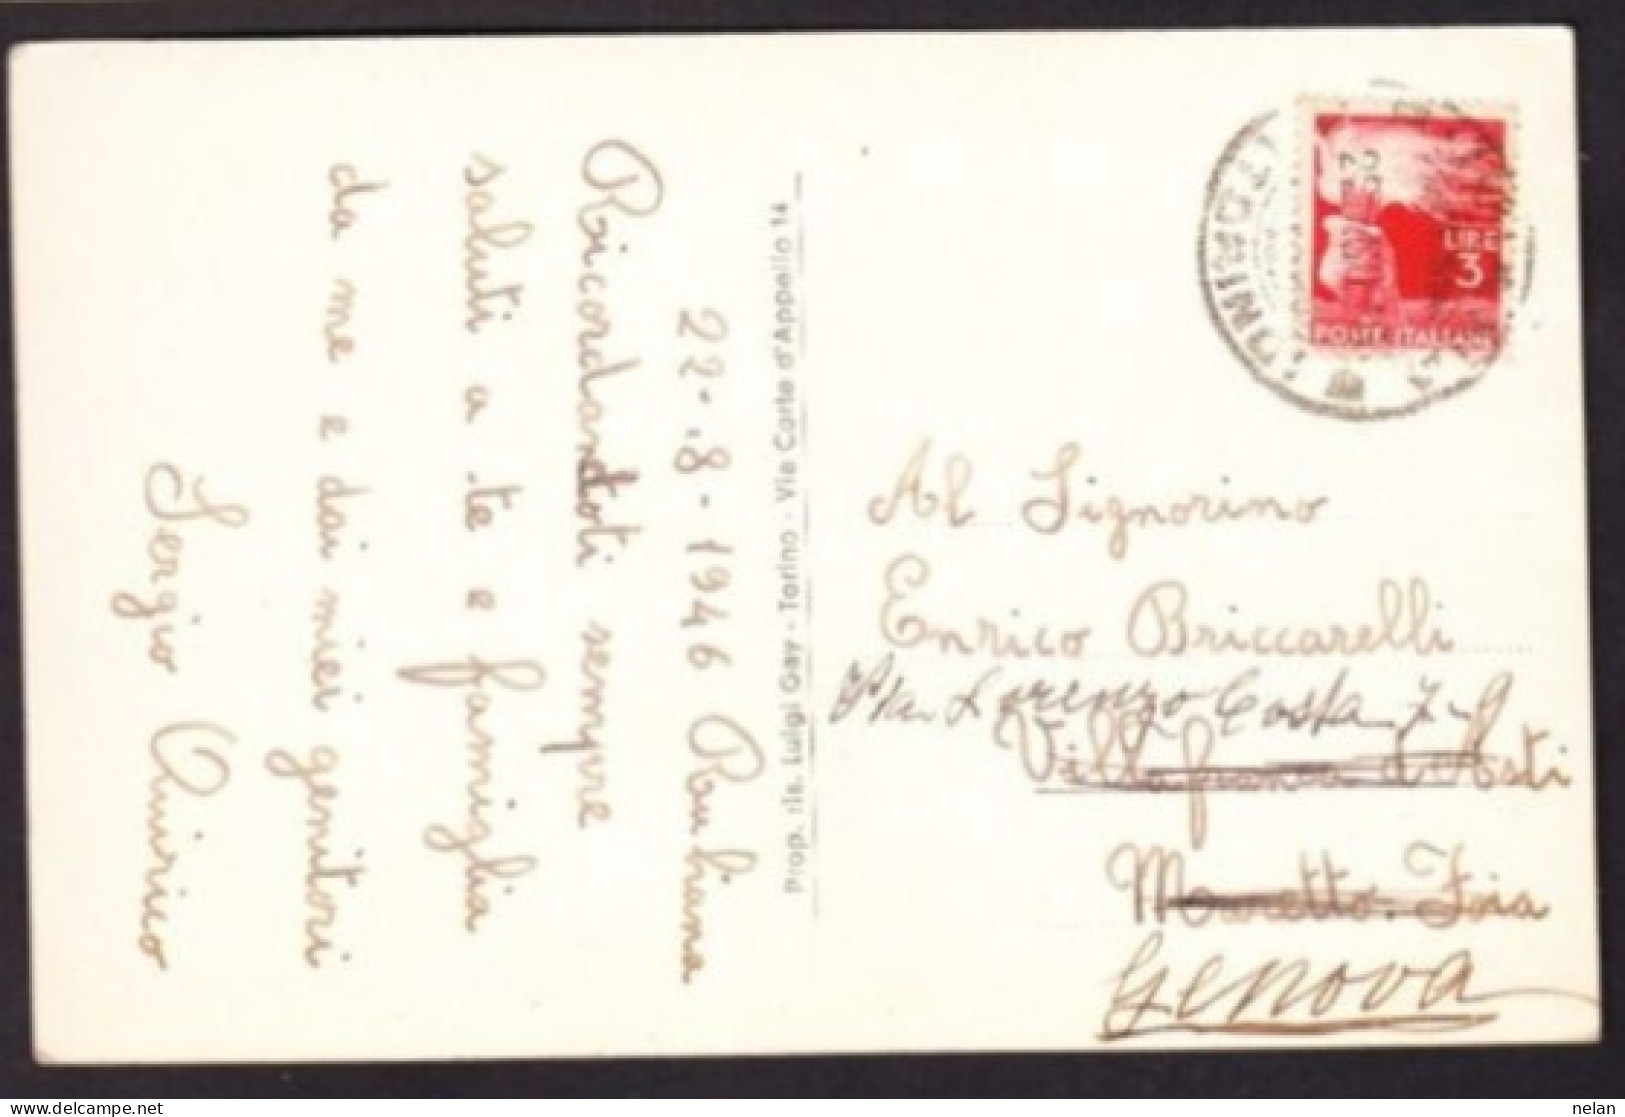 22.-8-1946 Rubiana
Ricordandoti sempre
saluti a te e famiglia
da me e dai miei genitori
Sergio Quirico
Prop. ris. Luigi Gay - Torino - Via Corte d'Appello 14
LIRE
3
POSTE ITALIANE
Al Signorino
Enrico Briccarelli
Via Lorenzo Costa 7-9
Villafranca d'Asti
Maretto.
Genova
nelan